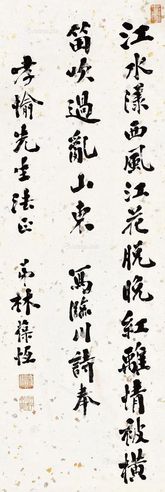 江水漾西風江花脫晚紅離情被橫
笛吹過亂山東 寫臨川詩奉
孝愉先生法正 弟林葆恆